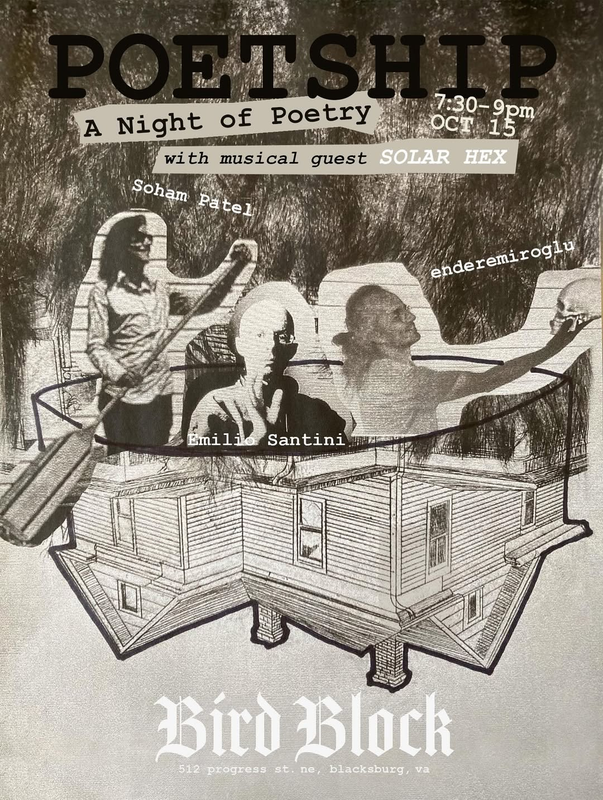 POETSHIP
A Night of Poetry
7:30-9pm
OCT 15
with musical guest SOLAR HEX
Soham Patel
enderemiroglu
Emilio Santini
Bird Block
512 progress st. ne, blacksburg, va